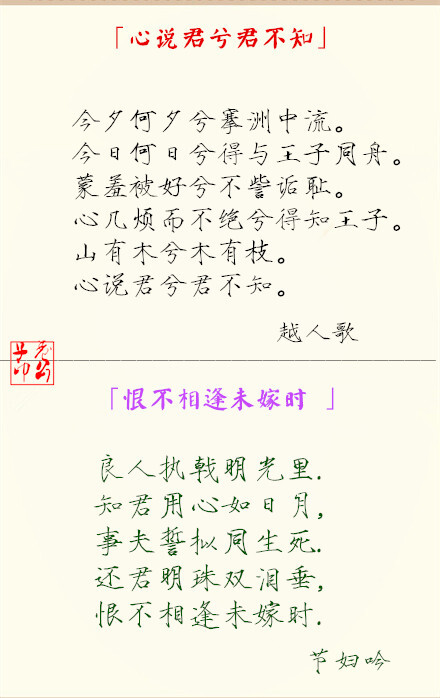 「心说君兮君不知」
今夕何夕兮搴洲中流。
今日何日兮得与王子同舟。
蒙羞被好兮不訾诟耻。
心几烦而不绝兮得知王子。
山有木兮木有枝。
心说君兮君不知。
越人歌
「恨不相逢未嫁时 」
良人执戟明光里.
知君用心如日月,
事夫誓拟同生死.
还君明珠双泪垂,
恨不相逢未嫁时.
节妇吟